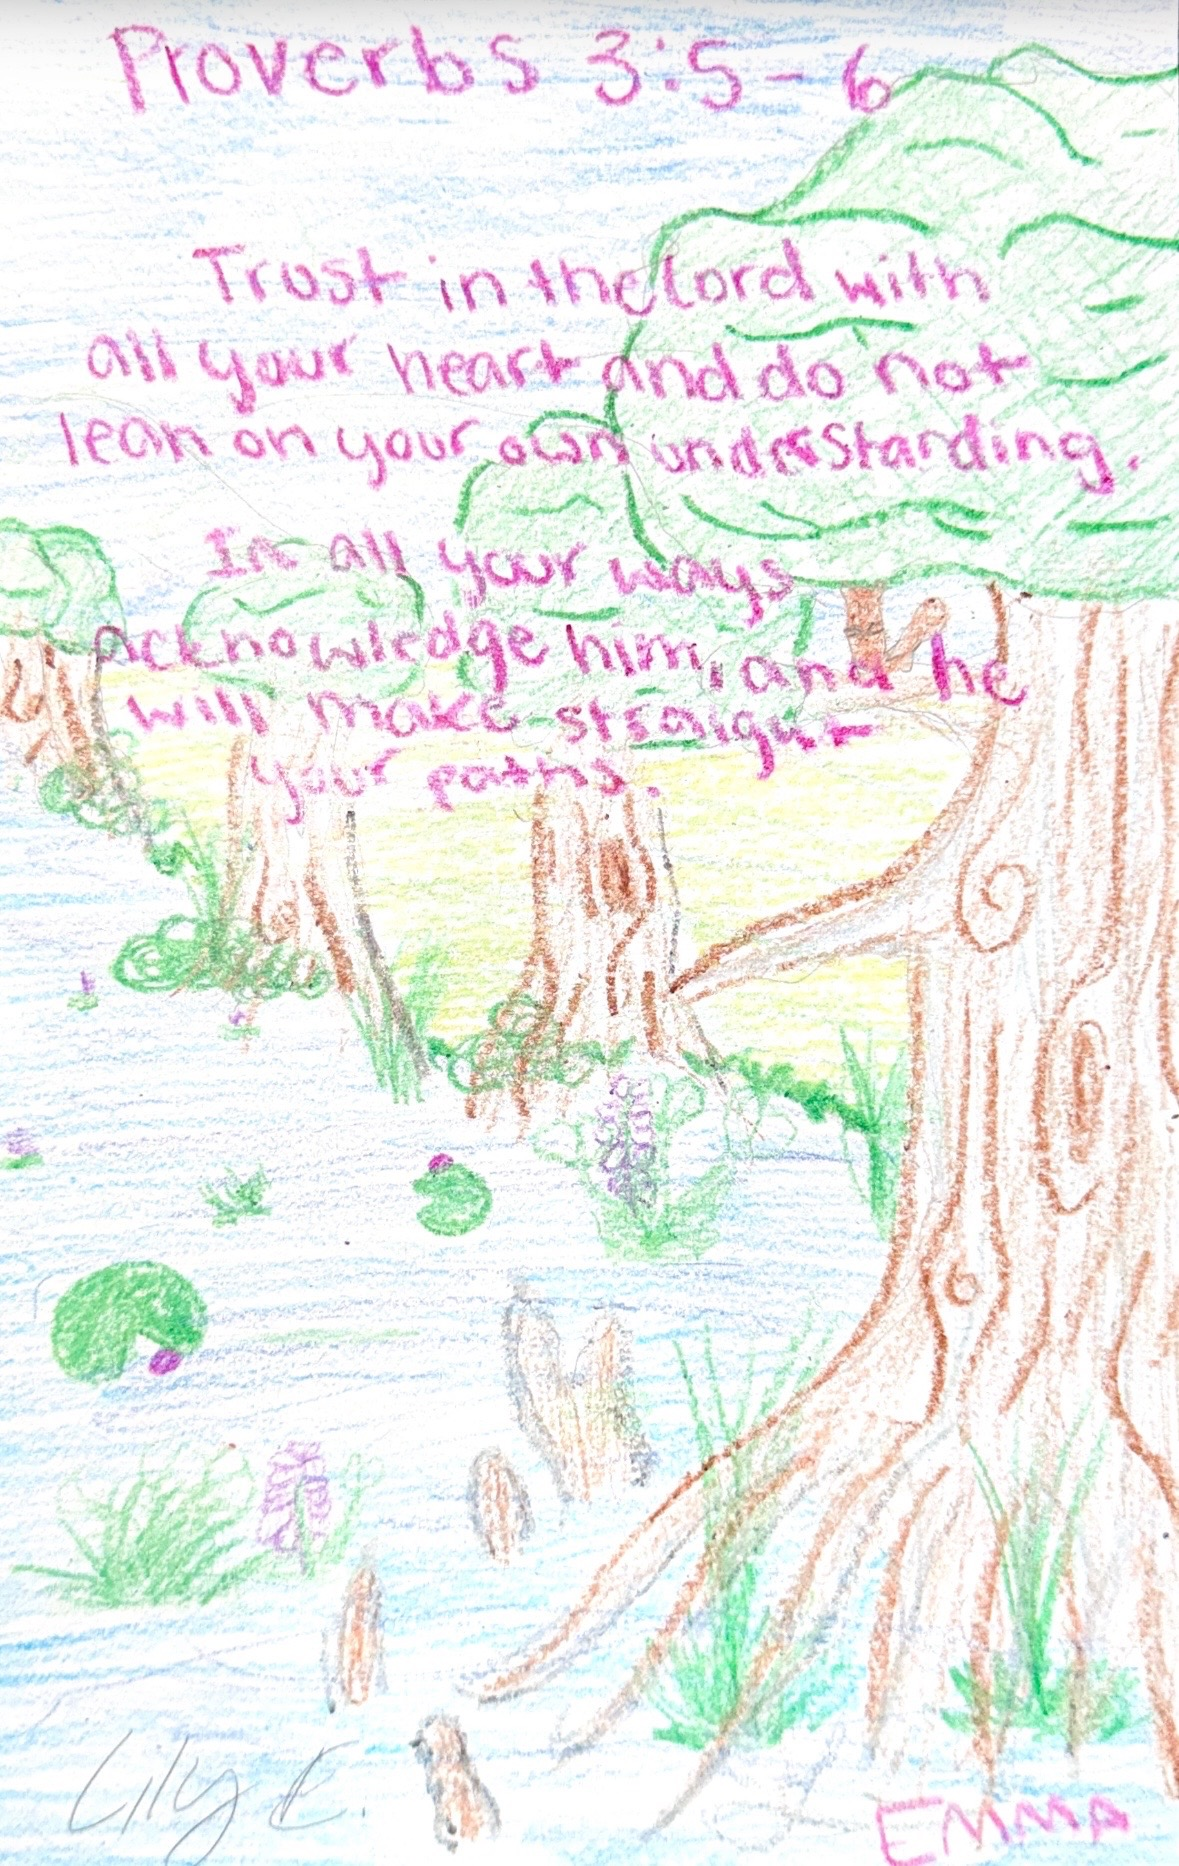 Proverbs 3:5-6
Trust in the Lord with
all your heart and do not
lean on your own understanding.
In all your ways
acknowledge him, and he
will make straight
your paths.
Lily E.
EMMA